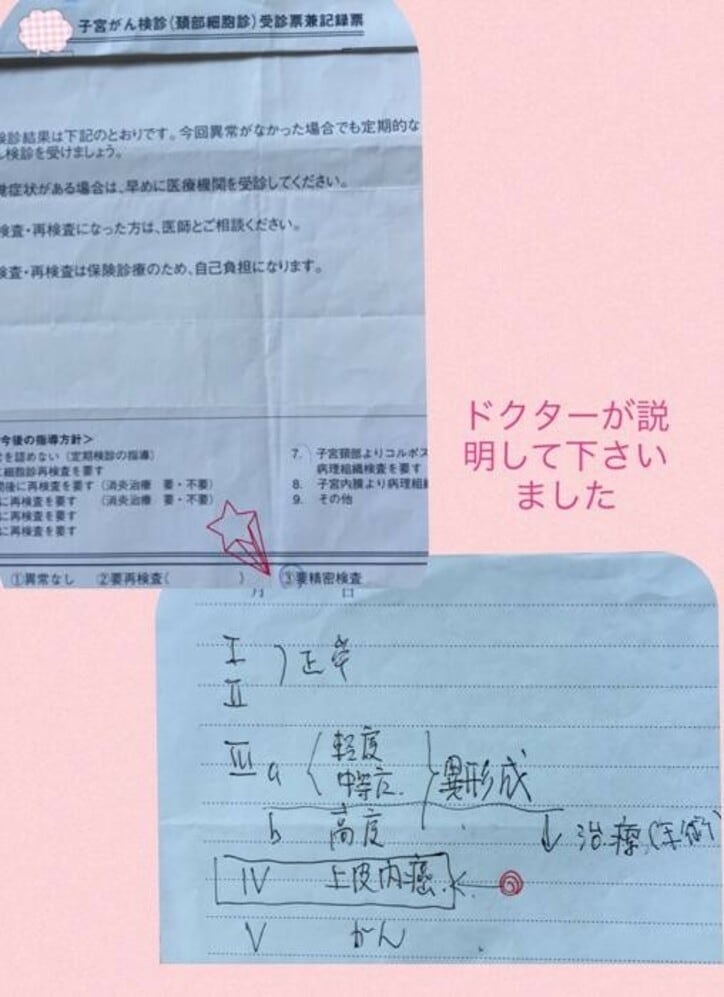 子宮がん検診(頚部細胞診)受診票兼記録票
検診結果は下記のとおりです。今回異常がなかった場合でも定期的な
検診を受けましょう。
症状がある場合は、早めに医療機関を受診してください。
検査・再検査になった方は、医師とご相談ください。
検査・再検査は保険診療のため、自己負担になります。
今後の指導方針>
を認めない(定期検診の指導)
細胞診再検査を要す
間後に再検査を要す(消炎治療 要・不要)
に再検査を要す(消炎治療 要・不要)
に再検査を要す
に再検査を要す
7. 子宮頚部よりコルポス
病理組織検査を要す
8. 子宮内膜より病理組
9. その他
①異常なし ②要再検査( ) ③要精密検査
ドクターが説
明して下さい
ました
月 日
I
II
)正常
III a 軽度
中等度
異形成
b 高度
↓治療(手術)
IV 上皮内癌
V がん